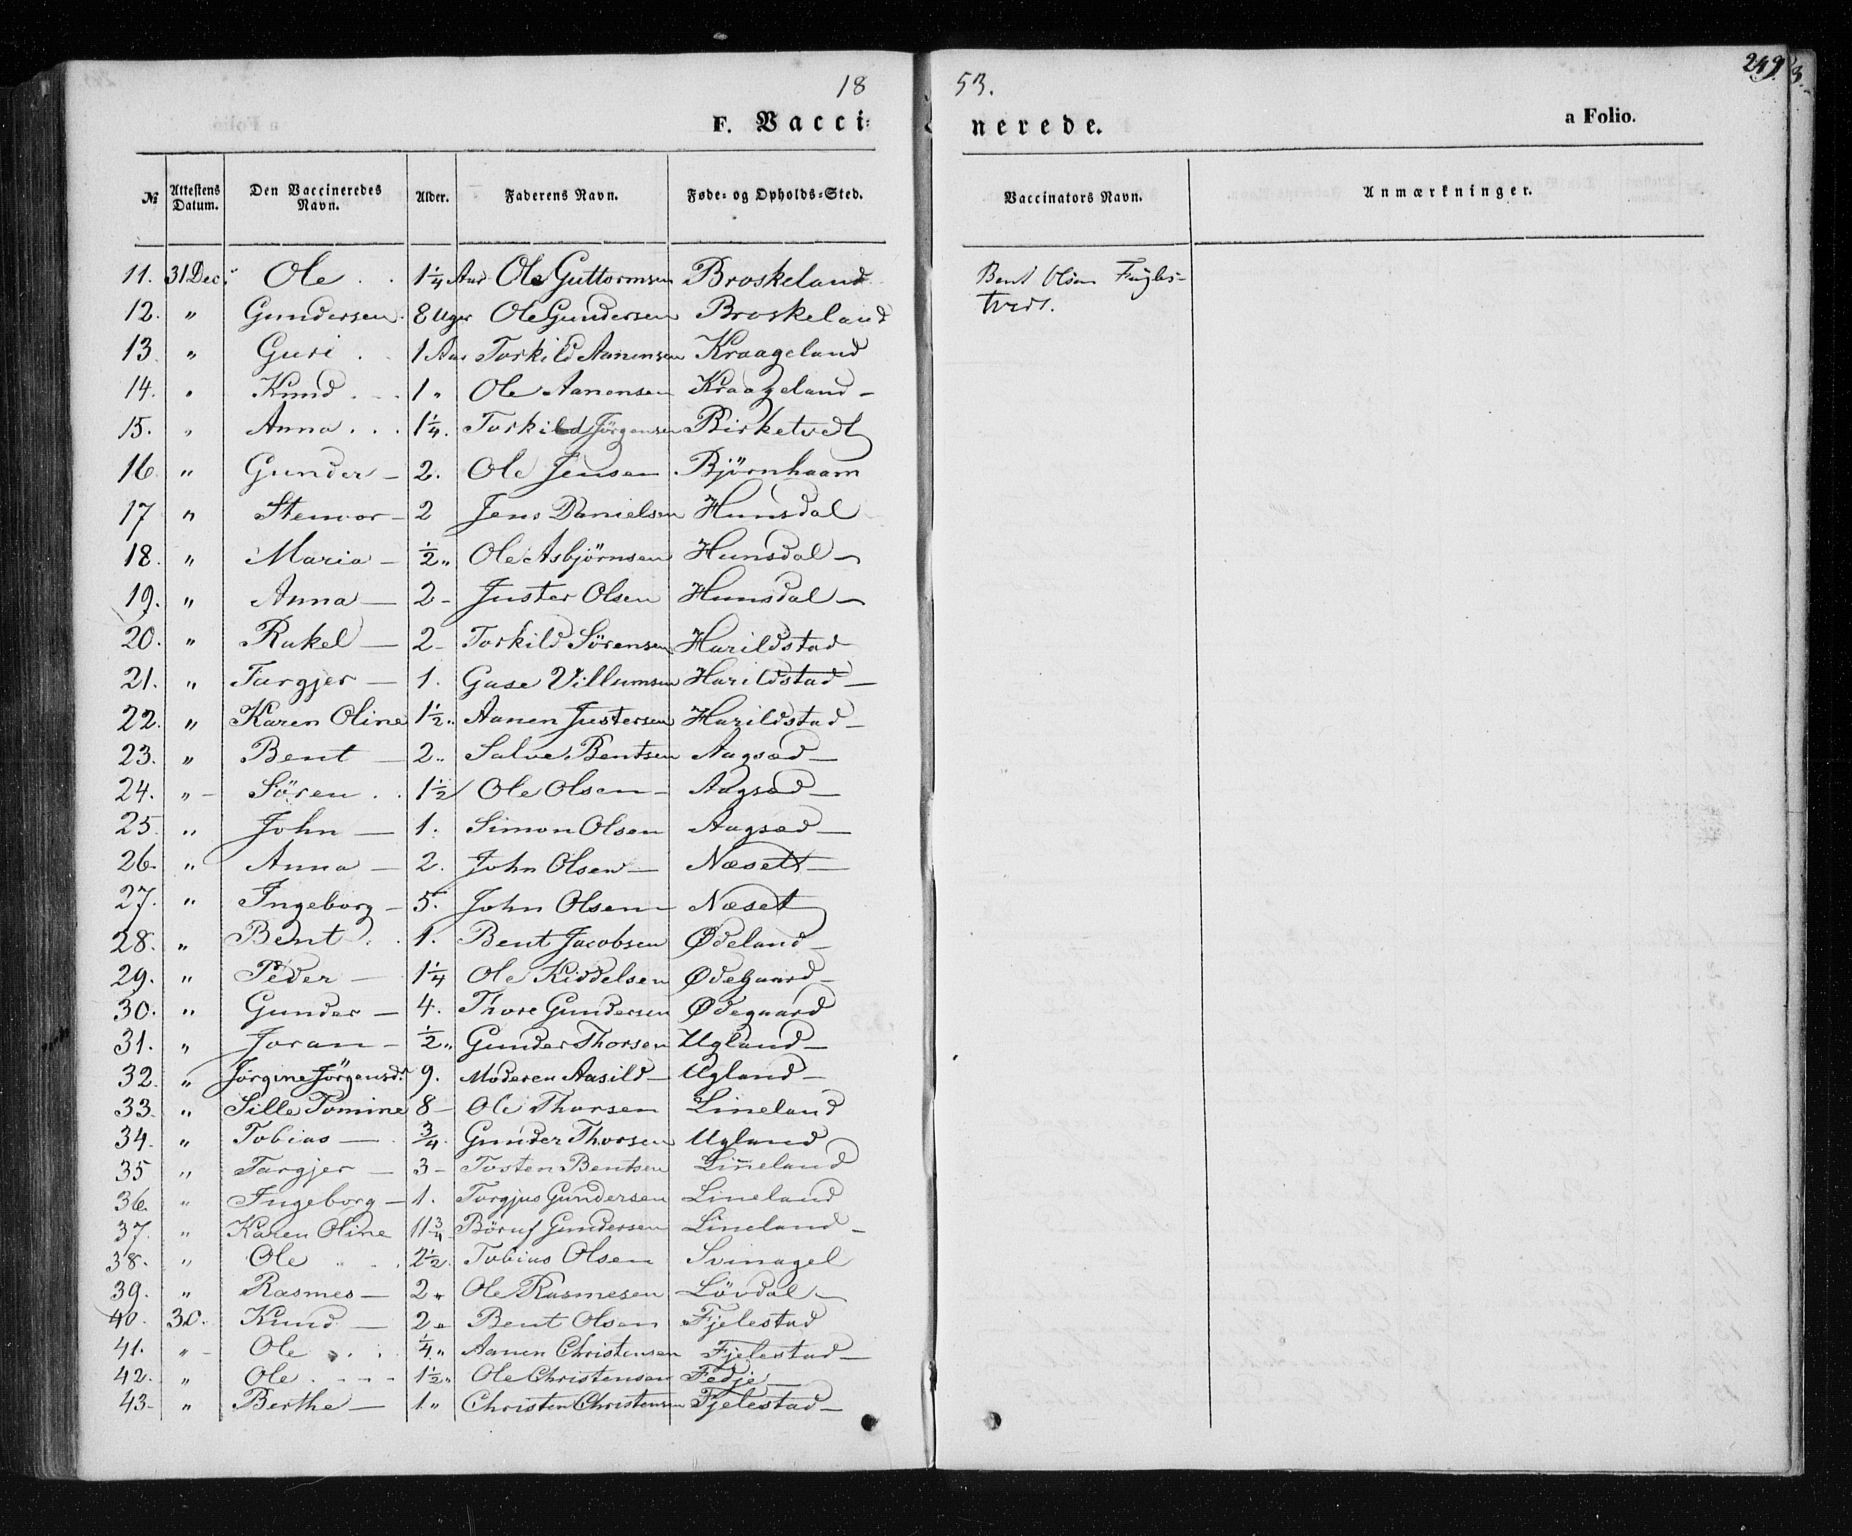 18 53.
249
F. Vaccinerede. a Folio.
№ Attestens Datum. Den Vaccineredes Navn. Alder. Faderens Navn. Føde- og Opholds-Sted. Vaccinators Navn. Anmærkninger.
11. 31 Dec. Ole 1 1/4 Aar Ole Guttormsen Broskeland Bent Olsen Fugles-
12. " Gundersen 8 Uger Ole Gundersen Broskeland tvedt.
13 " Guri 1 Aar Torkild Aanensen Kraageland
14. " Knud 1 " Ole Aanensen Kraageland -
15. " Anna 1 1/4. Torkild Jørgensen Birketvedt
16 " Gunder - 2. Ole Jensen Bjørnhaam
17 " Stenvor - 2 Jens Danielsen Hunsdal
18. " Maria - 1/2 " Ole Asbjørnsen Hunsdal -
19. " Anna - 2 - Juster Olsen Hunsdal -
20. " Rakel - 2 - Torkild Sörensen Harildstad
21. " Targjer - 1. Gase Villumsen Harildstad -
22. " Karen Oline 1 1/2 " Aanen Justersen Harildstad -
23. " Bent - 2 " Salve Bentsen Augsad -
24. " - Sören 1 1/2 Ole Olsen - Augsad -
25. " John - 1. Simon Olsen Augsad -
26. " Anna - 2. John Olsen - Næset -
27. " Ingeborg - 5. John Olsen - Næset
28. " Bent 1. Bent Jacobsen Ødeland -
29. " Peder - 1 1/4 Ole Kiddelsen Ødegaard -
30. " Gunder - 4. Thore Gundersen Ødegaard
31. " Joran - 1/2 " Gunder Thorsen Ugland -
32. " Jørgine Jörgensd. 9. Moderen Aasild - Ugland -
33. " Sille Tomine 8 - Ole Thorsen Lineland
34. " Tobias - 3/4. Gunder Thorsen Ugland
35 " Targjer - 3 - Tosten Bentsen Lineland
36. " Ingeborg - 1. Torgjus Gundersen Lineland
37. " Karen Oline 11 3/4 Böruf Gundersen Lineland -
38. " Ole 2 1/2. Tobias Olsen Svinagel
39. " Rasmes - 2 " Ole Rasmesen Lövdal -
40. 30. Knud - 2 " Bent Olsen Fjelestad
41. " - Ole 1/4 " Aanen Christensen Fjelestad -
42. " Ole 1 1/2 " Ole Christensen Fedje -
43 - " Berthe - 1 " Christen Christensen Fjelestad -